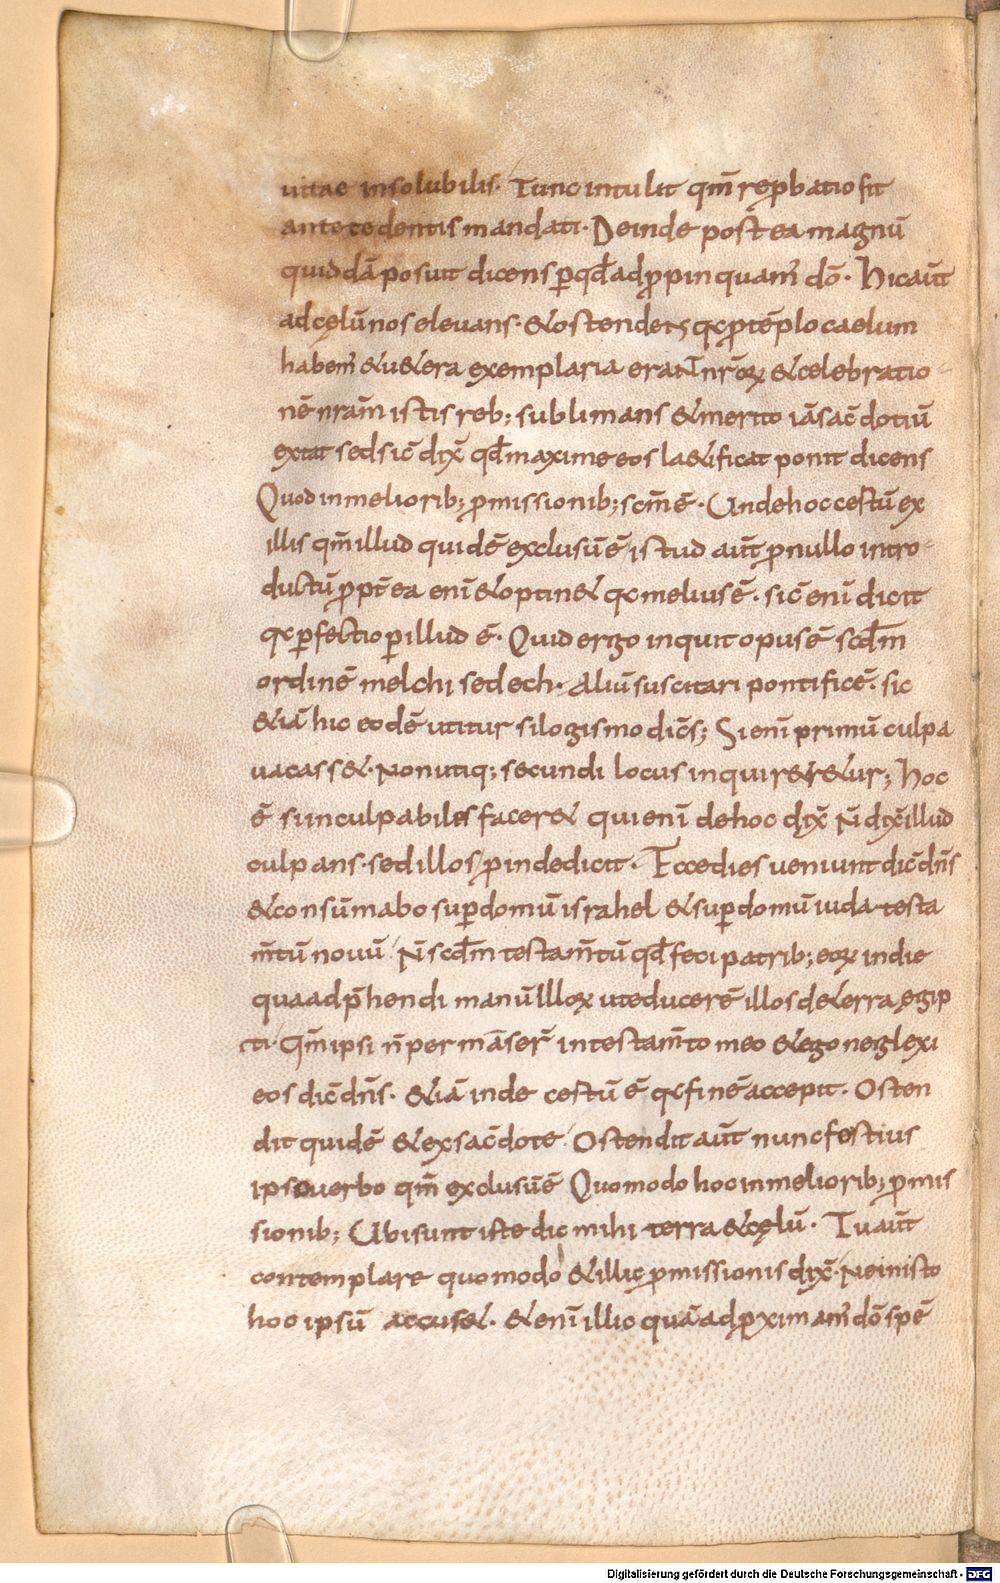 vitae insolubilis. Tunc intulit qm̄ rep̱batio fit
antecedentis mandati. Deinde post ea magnū
quiddā posuit dicens p̱ qd̄ adp̱pinquam' dō. Hic aūt
ad cęlū nos elevans. & ostendens qꝫ p̱ tēplo caelum
habem' & u&era exemplaria eraNT nr̄oꝝ & celebratio-
nē nr̄am istis reb; sublimans & merito iā sac̄dotiū
extat sed sic̄ dix̄ qd̄ maxime eos la&ificat ponit dicens
Quod in meliorib; p̱missionib; scm̄ ē. Unde hoc cęstū ex
illis qm̄ illud quidē exclusū ē istud aūt p̱ nullo intro-
ductū p̱pt̄ ea enī & optin& qꝫ melius ē. sic̄ enī dicit
qꝫ p̱fectio p̱ illud ē. Quid ergo inquit opus ē scd̄m
ordinē melchisedech. Aliū suscitari pontificē. sic
&iā hic eodē utitur silogismo dic̄s; Si enī primū culpa
vacass&. Non utiq; secundi locus inquirer&ur; hoc
ē si inculpabiles facer& qui enī de hoc dix̄ N̄ dix̄ illud
culpans. sed illos p̱inde dicit. Ecce dies veniunt dic̄ dn̄s
& consūmabo sup̱ domū israhel & sup̱ domū iuda testa
m̄tū novū N̄ scd̄m testam̄tū qd̄ feci patrib; eoꝝ in die
qua adp̄hendi manū illoꝝ ut educerē illos de terra ęgip
ti. Qm̄ ipsi n̄ permāser̄ in testam̄to meo & ego neglexi
eos dic̄ dn̄s. &iā inde cęstū ē qꝫ finē accepit. Osten
dit quidē & ex sac̄dote. Ostendit aūt nunc festius
ipso verbo qm̄ exclusū ē Quomodo hoc in meliorib; p̱mis
sionib; Ubi sunt iste dic mihi terra & cęlū. Tu aūt
contemplare quomodo & illic p̱missionis dix̄. Ne in isto
hoc ipsū accus&. & enī illic quā adp̱ximam' dō spē
Digitalisierung gefördert durch die Deutsche Forschungsgemeinschaft - DFG